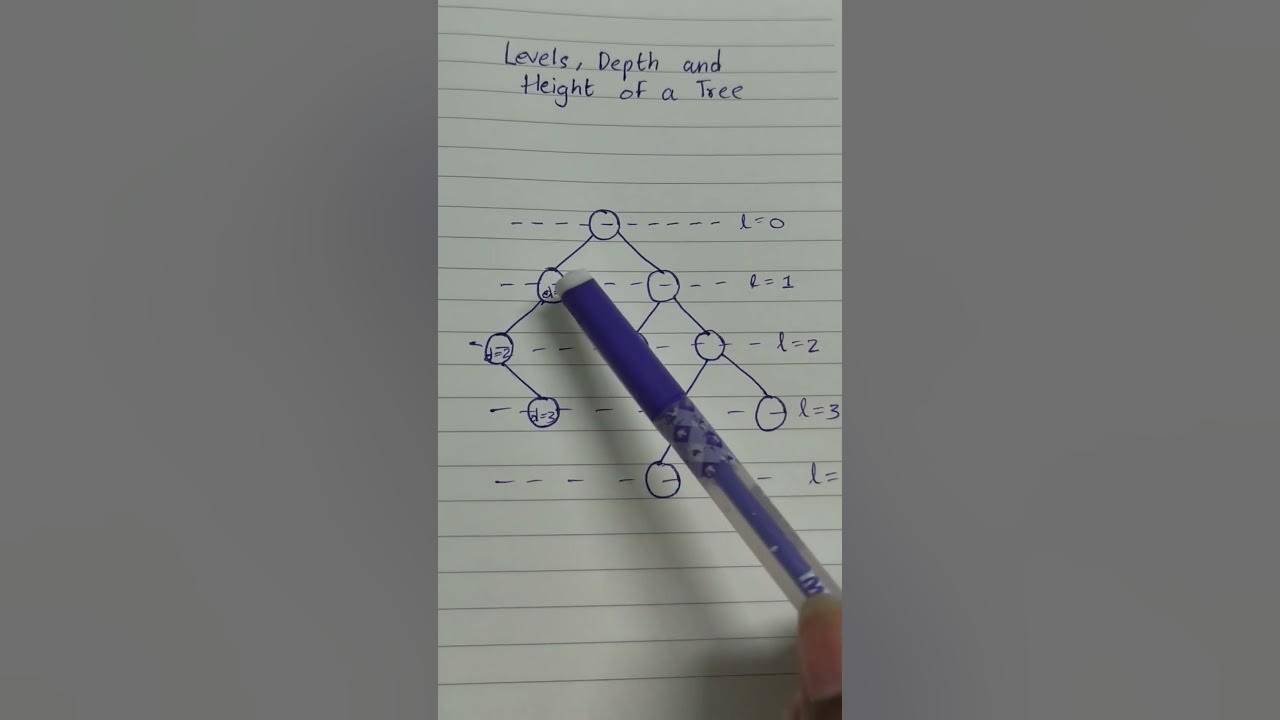 Levels, Depth and
Height of a Tree
l=0
l=1
d=2
l=2
d=3
l=3
l=